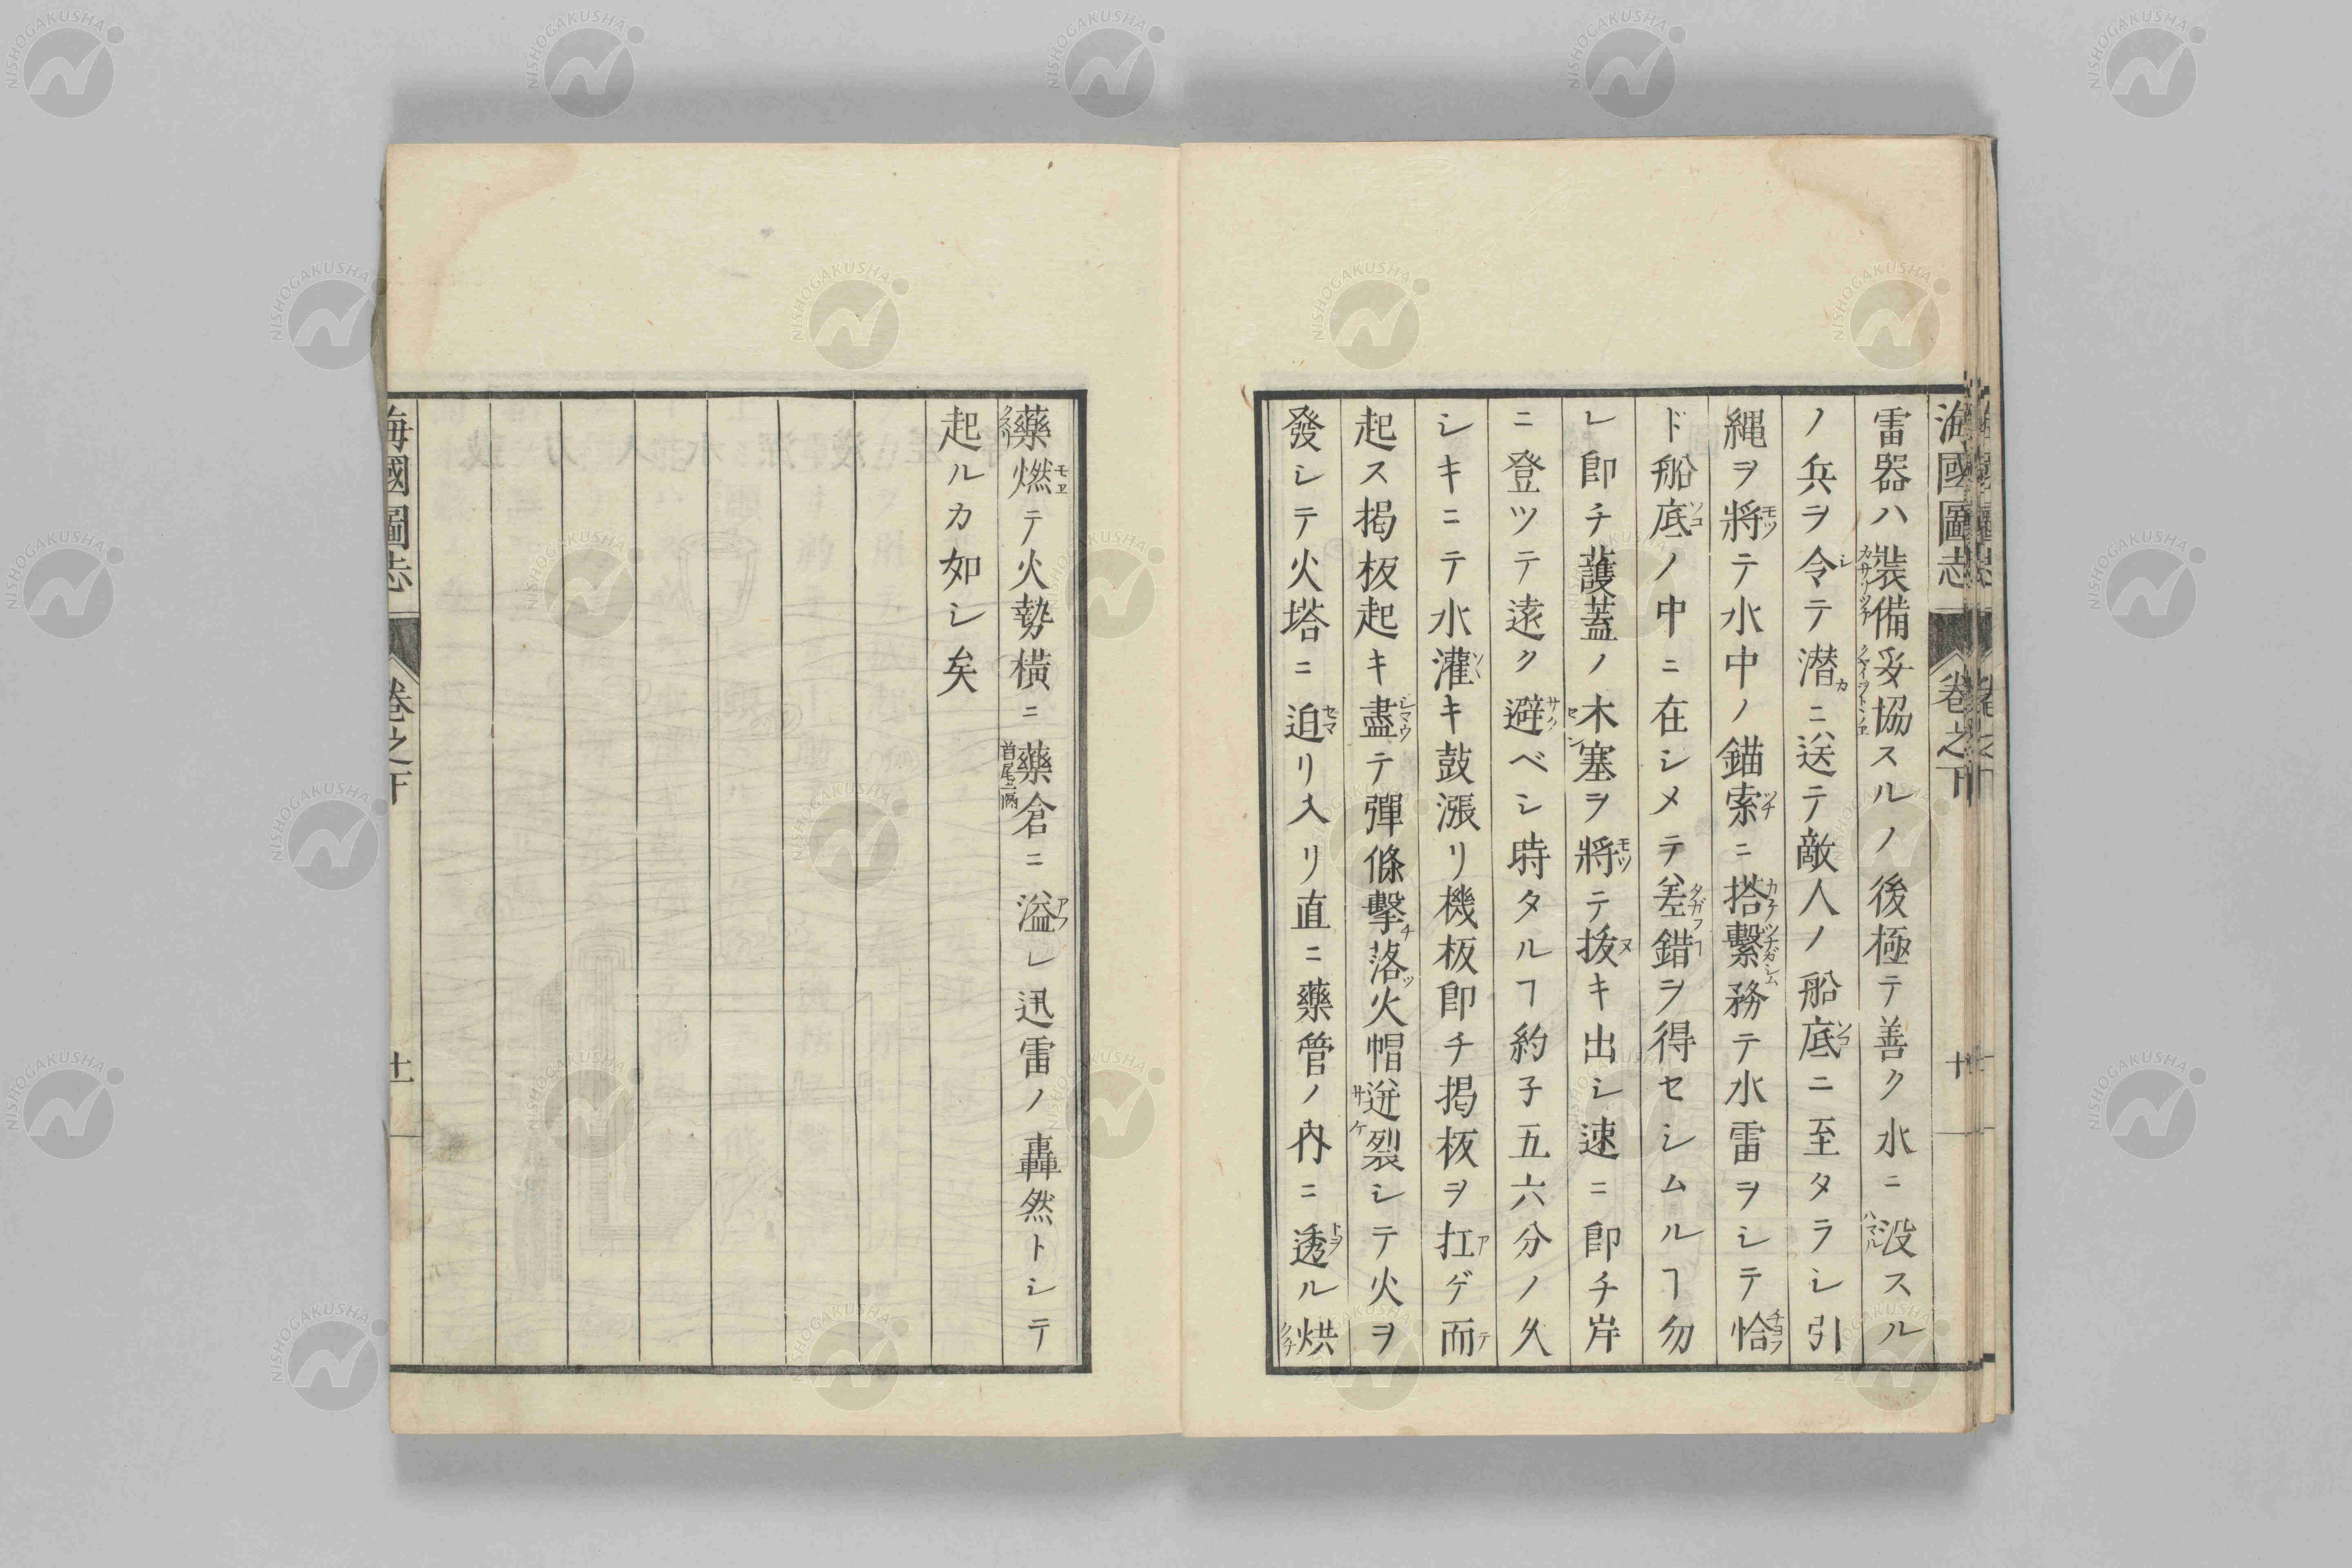 海國圖志 卷之下 十
雷器ハ裝備妥協スルノ後極テ善ク水ニ沒スル
ノ兵ヲ令テ潛ニ送テ敵人ノ船底ニ至タラシ引
繩ヲ將テ水中ノ錨索ニ搭繫務テ水雷ヲシテ恰
ド船底ノ中ニ在シメテ差錯ヲ得セシムルヿ勿
レ即チ護蓋ノ木塞ヲ將テ拔キ出シ速ニ即チ岸
ニ登ツテ遠ク避ベシ時タルヿ約子五六分ノ久
シキニテ水灌キ鼓漲リ機板即チ揭板ヲ扛ゲ而
起ス揭板起キ盡テ彈條擊落火帽迸裂シテ火ヲ
發シテ火塔ニ迫リ入リ直ニ藥管ノ內ニ透ル烘
藥燃テ火勢橫ニ藥倉ニ溢レ迅雷ノ轟然トシテ
首尾二両
起ルカ如シ矣
海國圖志 卷之下 十一
NISHOGAKUSHA